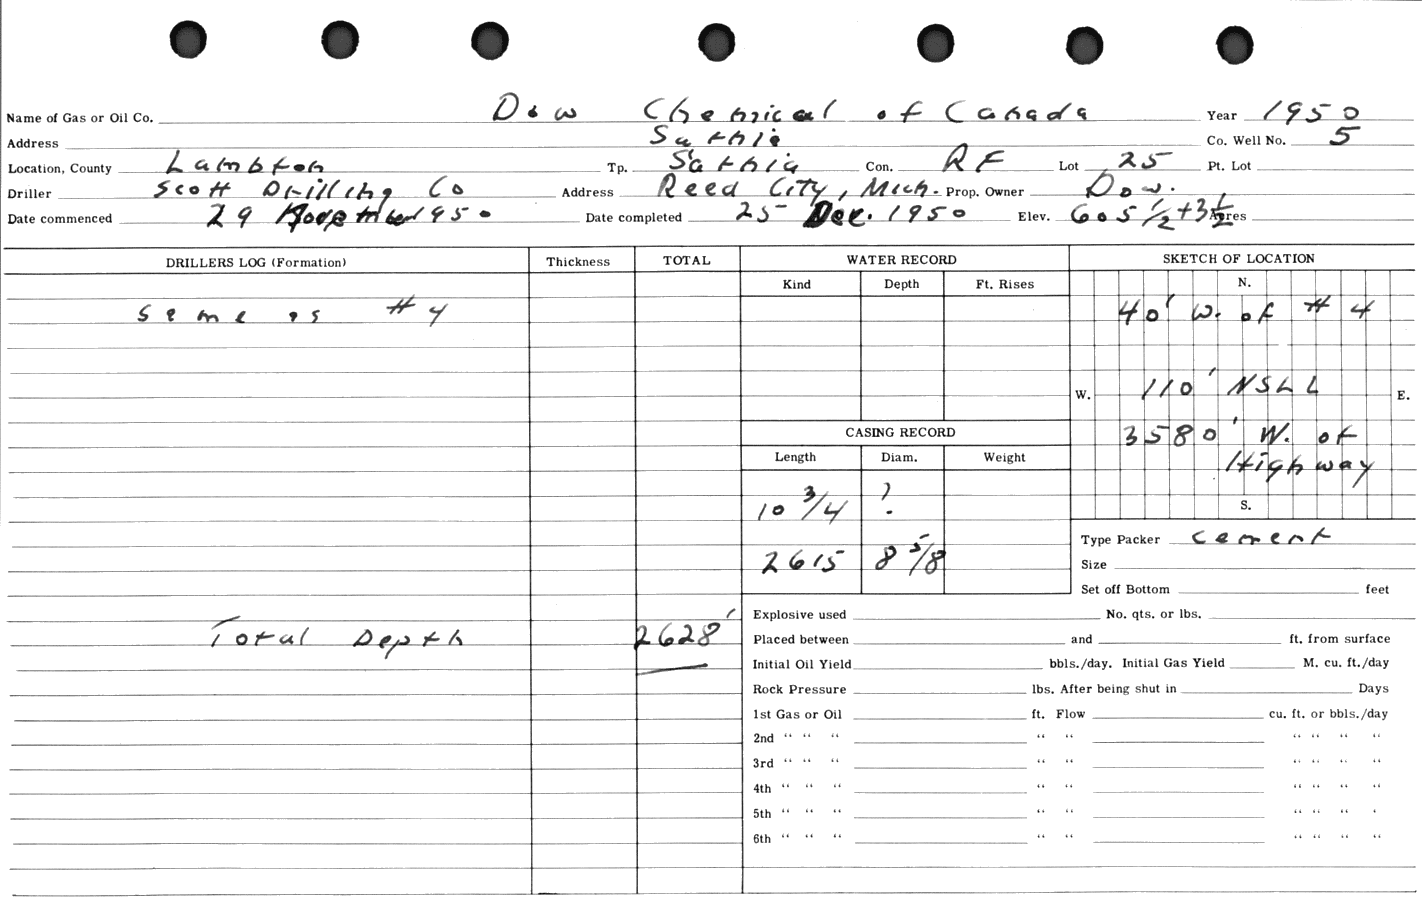 Name of Gas or Oil Co. Dow Chemical of Canada Year 1950
Address Sarnia Co. Well No. 5
Location, County Lambton Tp. Sarnia Con. RF Lot 25 Pt. Lot
Driller Scott Drilling Co Address Reed City, Mich. Prop. Owner Dow.
Date commenced 29 1950 Date completed 25 Dec. 1950 Elev. 605 1/2 + 3 1/2 Acres
DRILLERS LOG (Formation) Thickness TOTAL WATER RECORD SKETCH OF LOCATION
Kind Depth Ft. Rises N.
Same as #4 40' W. of #4
W. 110' NSLL E.
CASING RECORD 3580' W. of
Length Diam. Weight Highway
10 3/4 ? S.
Type Packer cement
2615 8 5/8 Size
Set off Bottom feet
Explosive used No. qts. or lbs.
Total Depth 2628' Placed between and ft. from surface
Initial Oil Yield bbls./day. Initial Gas Yield M. cu. ft./day
Rock Pressure lbs. After being shut in Days
1st Gas or Oil ft. Flow cu. ft. or bbls./day
2nd “ “ “ “ “ “ “ “ “
3rd “ “ “ “ “ “ “ “ “
4th “ “ “ “ “ “ “ “ “
5th “ “ “ “ “ “ “ “ ‘
6th “ “ “ “ “ “ “ “ “